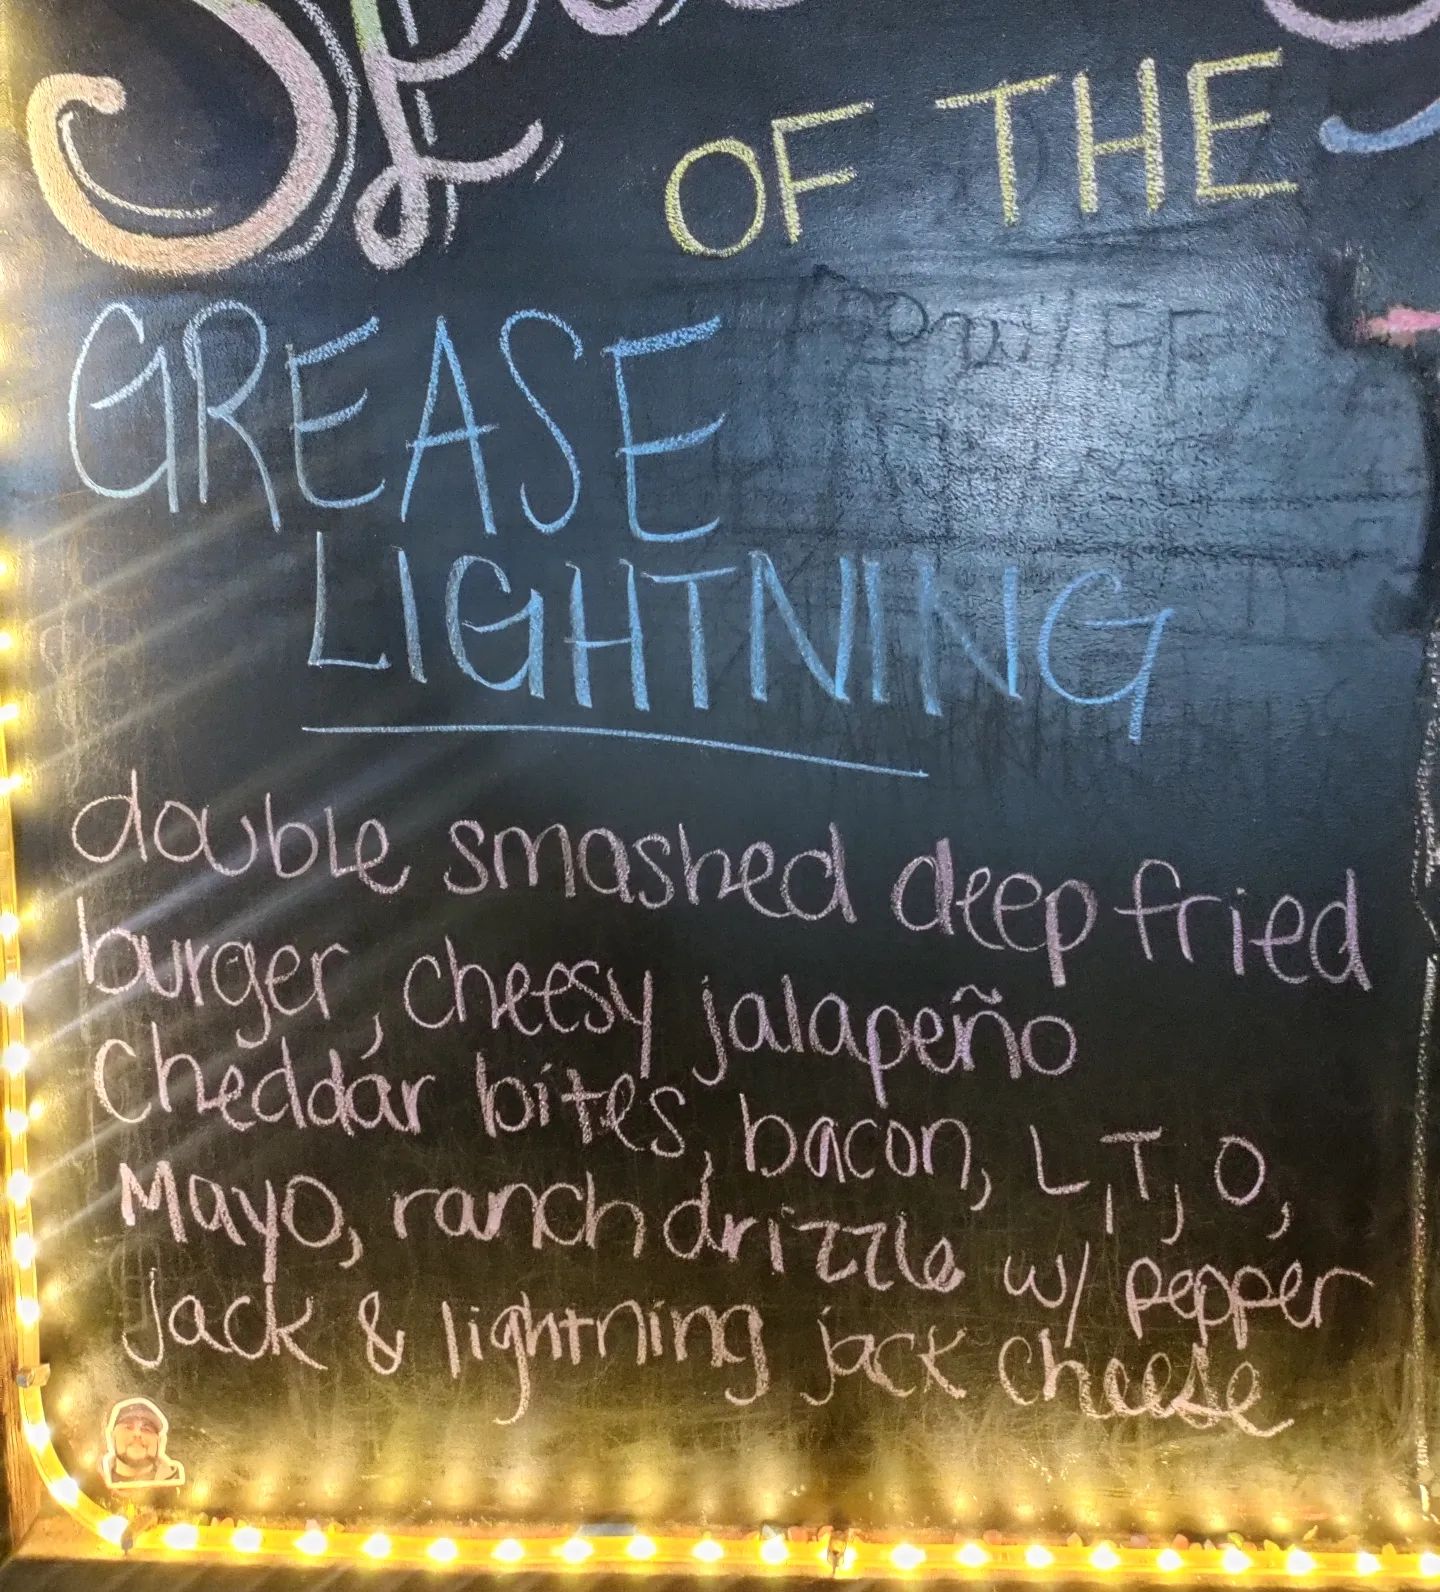 OF THE
GREASE
LIGHTNING
double smashed deep fried
burger, cheesy jalapeño
cheddar bites, bacon, L, T, O,
Mayo, ranch drizzle w/ pepper
jack & lightning jack cheese